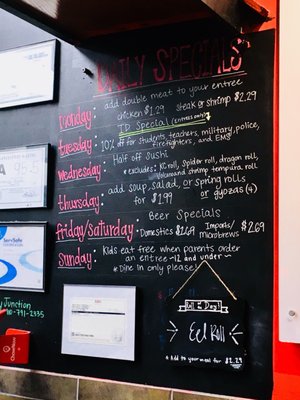 DAILY SPECIALS
monday: add double meat to your entree
chicken $1.29 steak or shrimp $2.29
ID Special (entrees only)
tuesday: 10% off for students, teachers, military, police,
firefighters, and EMS
wednesday: Half off Sushi
* excludes: KC roll, Spider roll, dragon roll,
and shrimp tempura roll
thursday: add soup, salad, or spring rolls
for $1.99 or gyozas (4)
Beer Specials
friday/saturday: Domestics $1.69 Imports/
microbrews $2.69
sunday: Kids eat free when parents order
an entree ~12 and under~
* Dine in only please!
Roll of the Day!
Eel Roll
* Add to your meal for $2.29
ServSafe
Junction
791-2335